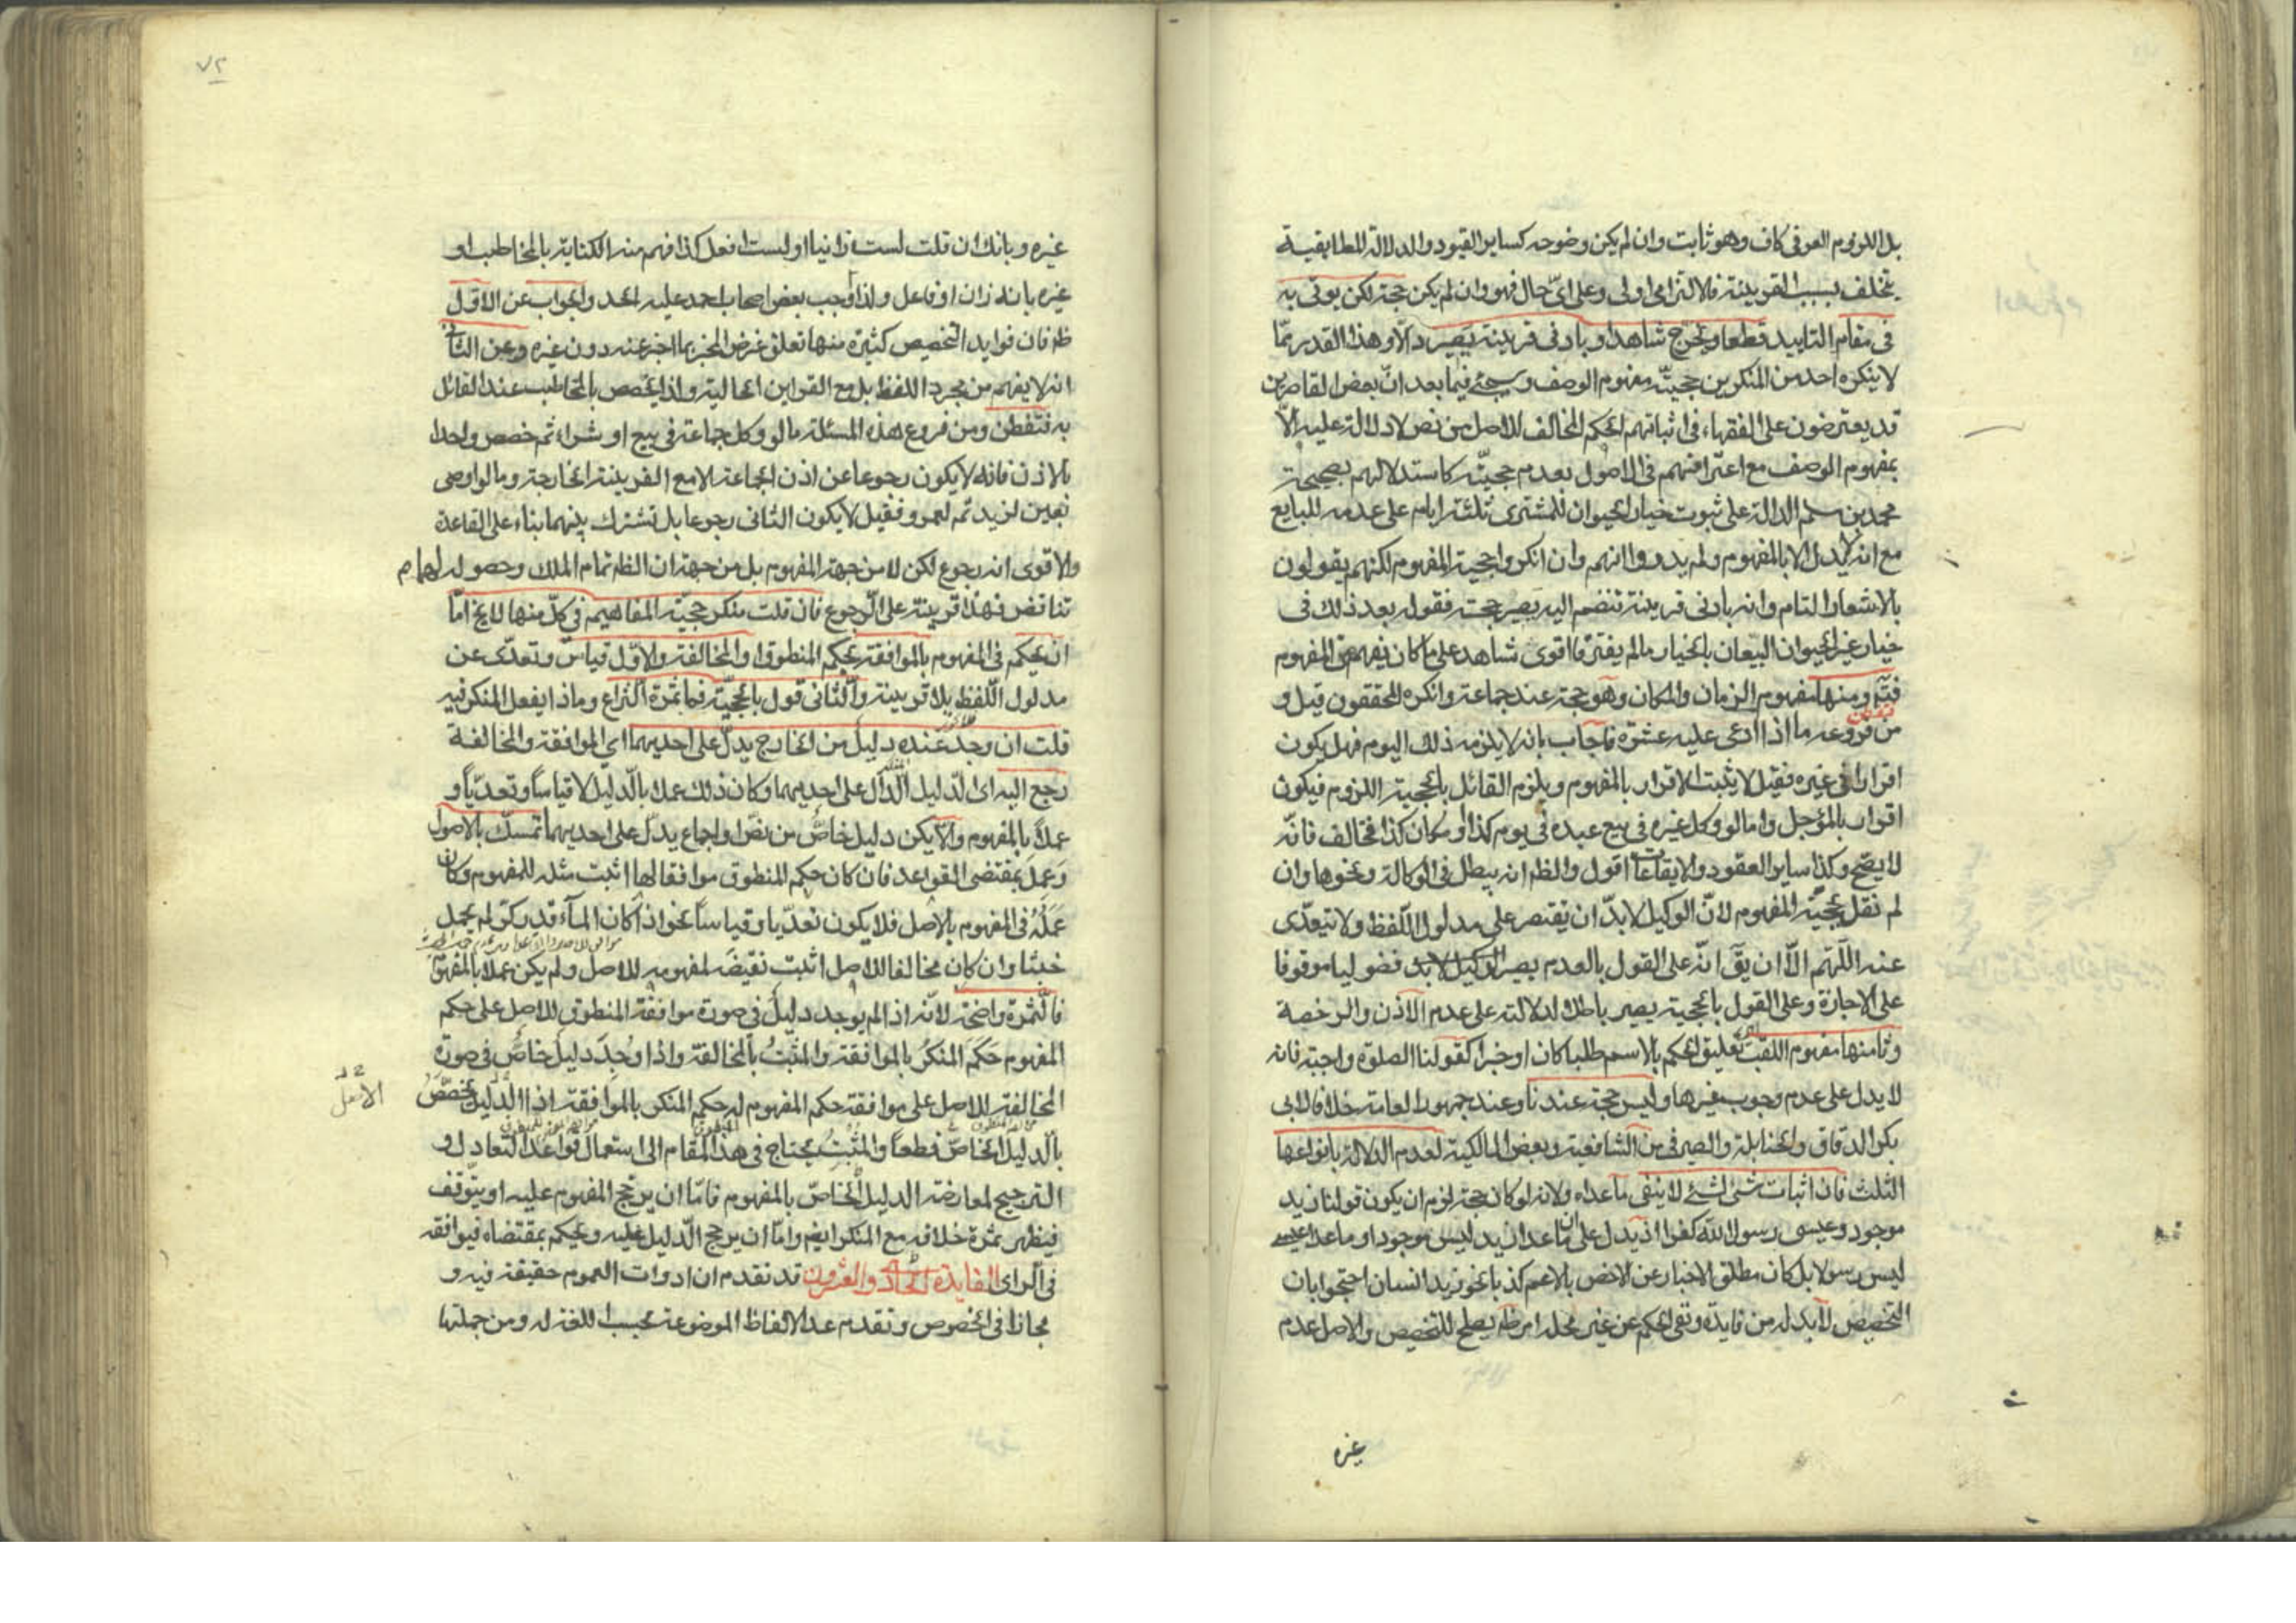 بل اللزوم العرفى كاف وهو ثابت وان لم يكن وضوحه كساير القيود والدلالة المطابقية
يتخلف بسبب القرينة فالالتزامى اولى وعلى اىّ حال فهو وان لم يكن حجة لكن يوتى به
فى مقام التاييد قطعا ويخرج شاهدا وبادنى قرينة يصير دالّا وهذا القدر ممّا
لا ينكره احد من المنكرين حجيّة مفهوم الوصف وسيجئ فيما بعد انّ بعض القاصرين
قد يعترضون على الفقهاء فى اثباتهم الحكم المخالف للاصل من نص لا دلالة عليه الّا
بمفهوم الوصف مع اعترافهم فى الاصول بعدم حجيّته كاستدلالهم بصحيحة
محمد بن مسلم الدالة على ثبوت خيار الحيوان للمشترى ثلثة ايام على عدمه للبايع
مع انه لا يدل الا بالمفهوم ولم يدروا انهم وان انكروا حجية المفهوم لكنهم يقولون
بالاشعار التام وانه بادنى قرينة تنضم اليه يصير حجة فقوله بعد ذلك فى
خيار غير الحيوان البيعان بالخيار ما لم يفترقا اقوى شاهد على ما كان يفهم من المفهوم
فتم ومنها مفهوم الزمان والمكان وهو حجة عند جماعة وانكره المحققون قيل و
من فروعه ما اذا ادعى عليه عشرة فاجاب بانه لا يلزمه ذلك اليوم فهل يكون
اقرارا فى غيره فقيل لا يثبت الاقرار بالمفهوم ويلزم القائل بالحجية اللزوم فيكون
اقرارا بالمؤجل واما لو وكل غيره فى بيع عبده فى يوم كذا او مكان كذا فخالف فانّه
لا يصح وكذا ساير العقود والايقاعات اقول والظم انه يبطل فى الوكالة ونحوها وان
لم نقل بحجيّة المفهوم لانّ الوكيل لا بدّ ان يقتصر على مدلول اللفظ ولا يتعدّى
عنه اللّهمّ الّا ان يقّ انّه على القول بالعدم يصير الوكيل لا بد فضوليا موقوفا
على الاجازة وعلى القول بالحجية يصير باطلا لدلالته على عدم الاذن والرخصة
وثامنها مفهوم اللقب اى تعليق الحكم بالاسم طلبا كان او خبرا كقولنا الصلوة واجبة فانه
لا يدل على عدم وجوب غيرها وليس حجة عندنا وعند جمهور العامة خلافا لابى
بكر الدقاق والحنابلة والصيرفى من الشافعية وبعض المالكية لعدم الدلالة بانواعها
الثلث فان اثبات شئ لشئ لا ينفى ما عداه ولانه لو كان حجة لزم ان يكون قولنا زيد
موجود وعيسى رسول الله كفرا اذ يدل على ان ما عدا زيد ليس موجود او ما عدا عيسى
ليس رسولا بل كان مطلق الاخبار عن الاخص بالاعم كذبا نحو زيد انسان احتجوا بان
التخصيص لا بد له من فايدة ونفى الحكم عن غير محله امر ظم يصلح للتخصيص والاصل عدم
غيره
٧٢
غيره وبانك ان قلت لست زانيا او لست افعل كذا فهم منه الكناية بالمخاطب او
غيره بانه زان او فاعل ولذا اوجب بعض اصحاب احمد عليه الحد والجواب عن الاول
ظم فان فوايد التخصيص كثيرة منها تعلق غرض المخبر بما اخبر عنه دون غيره وعن الثانى
انه لا يفهم من مجرد اللفظ بل مع القراين الحالية ولذا يختص بالمخاطب عند القائل
به فتفطن ومن فروع هذه المسئلة ما لو وكل جماعة فى بيع او شراء ثم خصص واحدا
بالاذن فانه لا يكون رجوعا عن اذن الجماعة الا مع القرينة الخارجة وما لو اوصى
بعين لزيد ثم لعمرو فقيل لا يكون الثانى رجوعا بل تشترك بينهما بناء على القاعدة
والاقوى انه رجوع لكن لا من جهة المفهوم بل من جهة ان الظم تمام الملك وحصوله لهما م
تناقض فهذا قرينة على الرجوع فان قلت منكر حجيّة المفاهيم فى كلّ منها لا يخ امّا
ان يحكم فى المفهوم بالموافقة بحكم المنطوق او المخالفة والاوّل قياس وتعدّى عن
مدلول اللّفظ بلا قرينة والثّانى قول بالحجيّة فما ثمرة النّزاع وماذا يفعل المنكر فيه
قلت ان وجد عنده دليل من الخارج يدلّ على احديهما اى الموافقة والمخالفة
رجع اليه اى الدّليل الدّال على احديهما وكان ذلك عملا بالدّليل لا قياساً وتعدّياً و
عملاً بالمفهوم والّا يكن دليل خاصّ من نصّ او اجماع يدلّ على احديهما تمسّك بالاصول
وَعَمِلَ بمقتضى القواعد فان كان حكم المنطوق موافقا لها اثبت مثله للمفهوم وكان
عَمَلُهُ فى المفهوم بالاصل فلا يكون تعدّيا وقياساً نحو اذا كان المآء قدر كرّ لم يحمل
خبثا وان كان مخالفا للاصل اثبت نقيضَه لمفهومه للاصل ولم يكن عملاً بالمفهوم
فالثّمرة واضحة لانّه اذا لم يوجد دليلٌ فى صورة موافقة المنطوق للاصل على حكم
المفهوم حَكَمَ المنكرُ بالموافقة والمثبتُ بالمخالفة واذا وُجِدَ دليلٌ خاصٌّ فى صورة
المخالفة للاصل على موافقة حكم المفهوم له حكم المنكر بالموافقة اذ الدّليل يخصّصُ
الاصل
بالدليل الخاصّ قطعاً والمثبتُ يحتاج فى هذا المقام الى استعمال قواعد التعادل و
الترجيح لمعارضة الدليل الخاصّ بالمفهوم فامّا ان يرجّح المفهوم عليه او يتوّقف
فيظهر ثمرة خلافه مع المنكر ايضم وامّا ان يرجح الدّليل عليه ويحكم بمقتضاه فيوافقه
فى الراى الفايدة الحادى والعشرون قد تقدم ان ادوات العموم حقيقة فيه و
مجاز فى الخصوص وتقدم عد الالفاظ الموضوعة بحسب اللغة له ومن جملتها